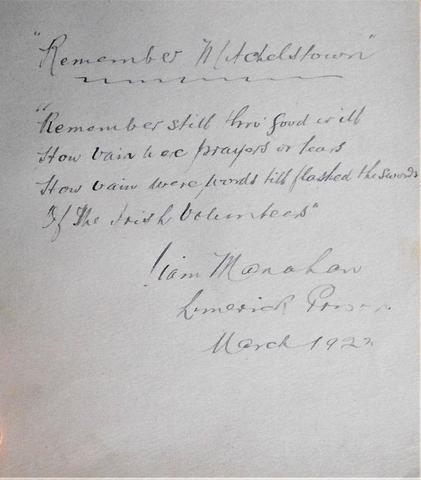 "Remember Mitchelstown"
"Remember still thro' good or ill
How vain were prayers or tears
How vain were words till flashed the swords
Of The Irish Volunteers"
Liam Monahan
Limerick Prison
March 1922